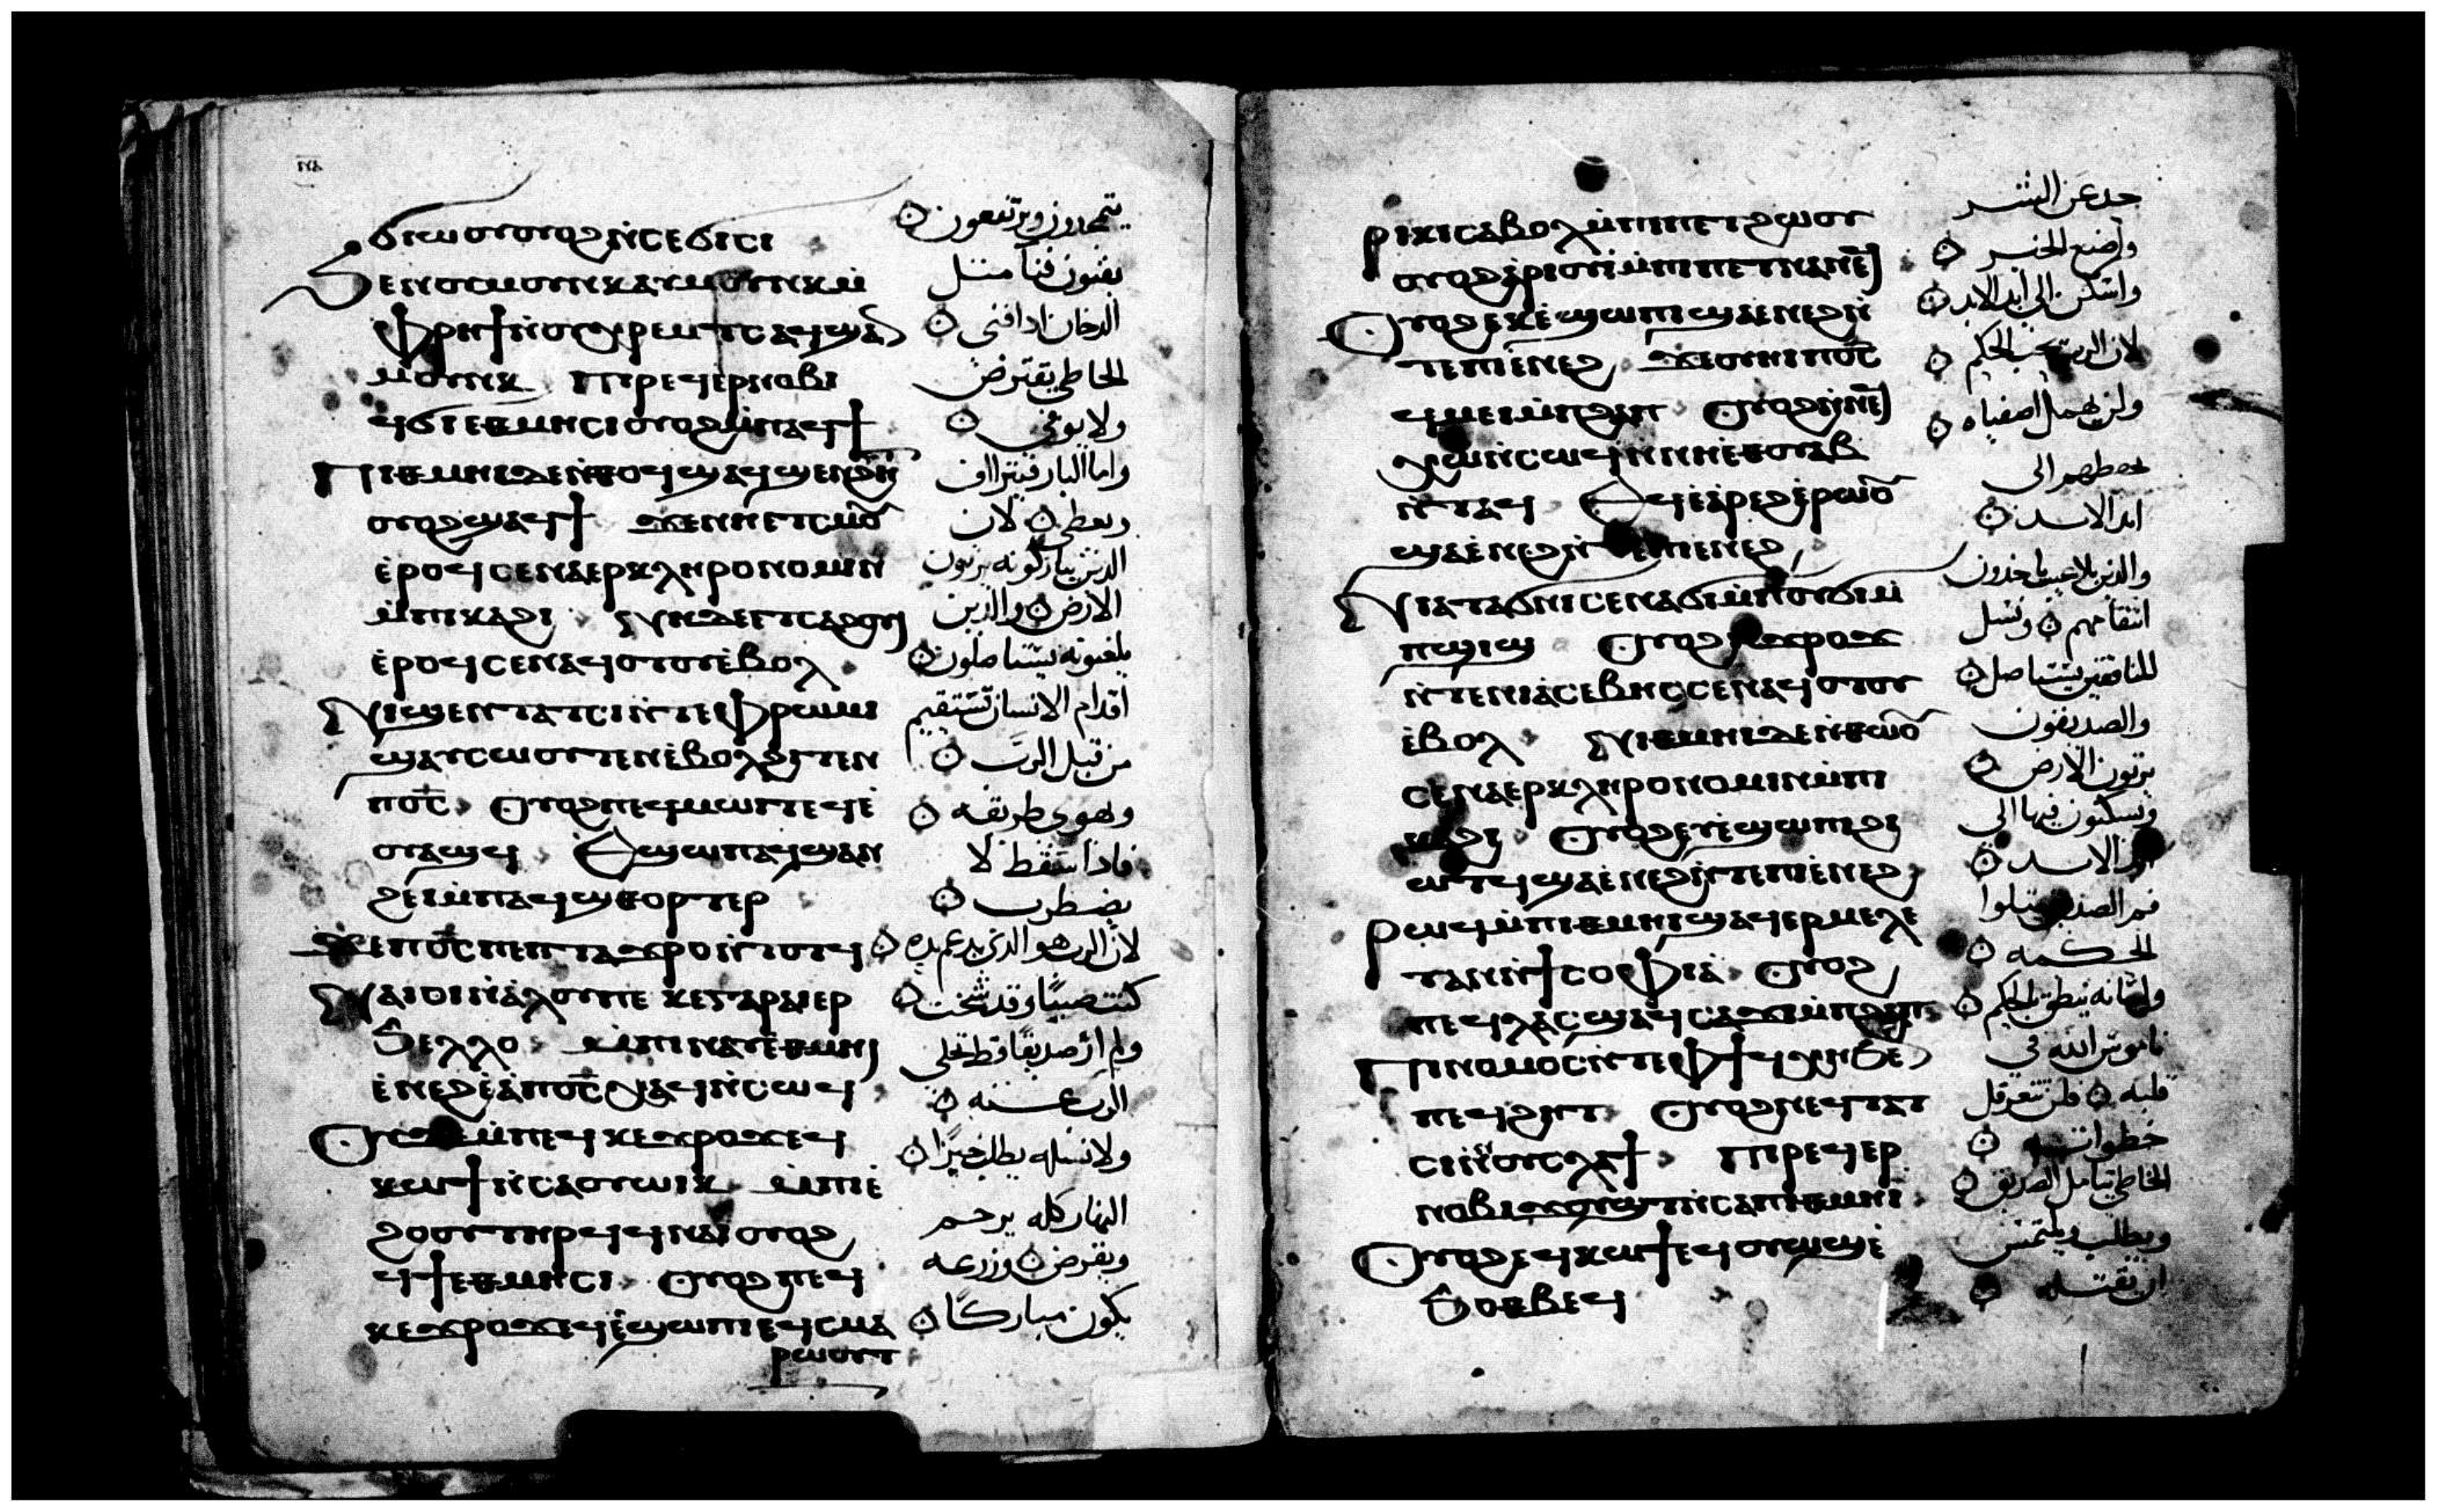 ϭⲓⲱⲟⲩⲟⲩⲟϩⲛ̀ⲥⲉϭⲓⲥⲓ
ϧⲉⲛⲟⲩⲙⲟⲩⲛⲕⲁⲩⲙⲟⲩⲛⲕⲙ̀
ⲫⲣⲏϯⲛ̀ⲟⲩⲭⲣⲉⲙⲧⲥⲁϥϣⲁⲛ
ⲙⲟⲩⲛⲕ ⲡⲓⲣⲉϥⲉⲣⲛⲟⲃⲓ
ϥϭⲓⲉⲑⲙⲏⲥⲓⲟⲩⲟϩⲙ̀ⲡⲁϥϯ
ⲡⲓⲑⲙⲏⲓⲇⲉⲛ̀ⲑⲟϥϣⲁϥϣⲉⲛϩⲏⲧ
ⲟⲩⲟϩϣⲁϥϯ ϫⲉⲛⲏⲉⲧⲥⲙⲟⲩ
ⲉ̀ⲣⲟϥⲥⲉⲛⲁⲉⲣⲕⲗⲏⲣⲟⲛⲟⲙⲓⲛ
ⲙ̀ⲡⲕⲁϩⲓ ⲛⲏⲇⲉⲉⲧⲥⲁϩⲟⲩⲓ
ⲉ̀ⲣⲟϥⲥⲉⲛⲁϥⲟⲧⲟⲩⲉ̀ⲃⲟⲗ
ⲛⲓϣⲉⲛⲧⲁⲧⲥⲓⲛ̀ⲧⲉⲫⲣⲱⲙⲓ
ϣⲁⲩⲥⲱⲟⲩⲧⲉⲛⲉ̀ⲃⲟⲗϩⲓⲧⲉⲛ
ⲡⲟ̅ⲥ̅ ⲟⲩⲟϩⲡⲉϥⲙⲱⲓⲧⲉϥⲉ̀
ⲟⲩⲁϣϥ ⲉϣⲱⲡⲁϥϣⲁⲛ
ϩⲉⲓⲙ̀ⲡⲁϥϣⲑⲟⲣⲧⲉⲣ
ϫⲉⲡⲟ̅ⲥ̅ⲡⲉⲧⲧⲁϫⲣⲟⲛ̀ⲧⲟⲧϥ
ⲛⲁⲓⲟⲓⲛ̀ⲁ̀ⲗⲟⲩⲡⲉ ⲕⲉⲅⲁⲣⲁⲓⲉⲣ
ϧⲉⲗⲗⲟ ⲙ̀ⲡⲓⲛⲁⲩⲉ̀ⲑⲙⲏⲓ
ⲉ̀ⲛⲉϩⲉ̀ⲁ̀ⲡⲟ̅ⲥ̅ⲭⲁϥⲛ̀ⲥⲱϥ
ⲟⲩⲇⲉⲙ̀ⲡⲉϥⲕⲉϫⲣⲟϫⲉϥ
ⲕⲱϯⲛ̀ⲥⲁⲟⲩⲱⲓⲕ ⲙ̀ⲡⲓⲉ̀
ϩⲟⲟⲩⲧⲏⲣϥϥⲛⲁⲓⲟⲩⲟϩ
ϥϯⲉⲑⲙⲏⲥⲓ ⲟⲩⲟϩⲡⲉϥ
ⲕⲉϫⲣⲟϫⲉϥⲉ̀ϣⲱⲡⲓⲉϥⲥⲙⲁ
ⲣⲱⲟⲩⲧ
يتمجدون ويرتفعون
يفنون فنآ مثل
الدخان اذا فني
الخاطي يقترض
ولا يوفي
واما البار فيتراف
ويعطي لان
الذين يباركونه يرثون
الارض والذين
يلعنونه يستاصلون
اقدام الانسان تستقيم
من قبل الرب
وهوى طريقه
فاذا سقط لا
يضطرب
لان الرب هو الذي يدعم يده
كنت صبيًا وقد شخت
ولم ار صديقًا قط تخلى
الرب عنه
ولا نسله يطلب خبزًا
النهار كله يرحم
ويقرض وزرعه
يكون مباركًا
ⲣⲓⲕⲓⲥⲁⲃⲟⲗⲙ̀ⲡⲓⲡⲉⲧϩⲱⲟⲩ
ⲟⲩⲟϩⲁ̀ⲣⲓⲟⲩⲓ̀ⲙ̀ⲡⲓⲡⲉⲑⲛⲁⲛⲉϥ
ⲟⲩⲟϩⲉⲕⲉ̀ϣⲱⲡⲓϣⲁⲉⲛⲉϩⲛ̀
ⲧⲉⲡⲓⲉ̀ⲛⲉϩ ϫⲉⲟⲩⲏⲓⲡⲟ̅ⲥ̅
ϥⲙⲉⲓⲙ̀ⲡϩⲁⲡ ⲟⲩⲟϩⲛ̀ⲛⲉϥ
ⲭⲱⲛ̀ⲥⲱϥⲛ̀ⲛⲏⲉ̀ⲑⲟⲩⲁⲃ
ⲛ̀ⲧⲁϥ ⲉϥⲉ̀ⲁ̀ⲣⲉϩⲉ̀ⲣⲱⲟⲩ
ϣⲁⲉ̀ⲛⲉϩⲛ̀ⲧⲉⲡⲓⲉⲛⲉϩ
ⲛⲓⲁⲧⲁϭⲛⲓⲥⲉⲛⲁϭⲓⲙ̀ⲡⲟⲩϭⲓⲙ̀
ⲡϣⲓϣ ⲟⲩⲟϩⲡϫⲣⲟϫ
ⲛ̀ⲧⲉⲛⲓⲁ̀ⲥⲉⲃⲏⲥⲥⲉⲛⲁϥⲟⲧⲟⲩ
ⲉ̀ⲃⲟⲗ ⲛⲓⲑⲙⲏⲓⲇⲉⲛ̀ⲑⲱⲟⲩ
ⲥⲉⲛⲁⲉⲣⲕⲗⲏⲣⲟⲛⲟⲙⲓⲛⲙ̀ⲡ
ⲕⲁϩⲓ ⲟⲩⲟϩⲉⲩⲉ̀ϣⲱⲡⲓϩⲓ
ⲱⲧϥϣⲁⲉ̀ⲛⲉϩⲛ̀ⲧⲉⲡⲓⲉ̀ⲛⲉϩ
ⲣⲱϥⲙ̀ⲡⲓⲑⲙⲏⲓϣⲁϥⲉⲣⲙⲉⲗⲉ
ⲧⲁⲛⲛ̀ϯⲥⲟⲫⲓⲁ̀ ⲟⲩⲟϩ
ⲡⲉϥⲗⲁⲥϣⲁϥⲥⲁϫⲓⲙ̀ⲡϩⲁⲡ
ⲡⲓⲛⲟⲙⲟⲥⲛ̀ⲧⲉⲫϯϥⲭⲏϧⲉⲛ
ⲡⲉϥϩⲏⲧ ⲟⲩⲟϩⲛⲉϥⲧⲁⲧ
ⲥⲓⲛ̀ⲛⲟⲩⲥⲗⲁϯ ⲡⲓⲣⲉϥⲉⲣ
ⲛⲟⲃⲓϫⲟⲩϣⲧⲛ̀ⲥⲁⲡⲓⲑⲙⲏⲓ
ⲟⲩⲟϩⲉϥⲕⲱϯⲉϥⲟⲩⲱϣⲉ̀
ϧⲟⲑⲃⲉϥ
حد عن الشر
واصنع الخير
واسكن الى ابد الابد
لان الرب يحب الحكم
ولن يهمل اصفياه
يحفظهم الى
ابد الابد
والذين بلا عيب ياخذون
انتقامهم ونسل
المنافقين يستاصل
والصديقون
يرثون الارض
ويسكنون فيها الى
ابد الابد
فم الصديق يتلوا
الحكمه
ولسانه ينطق بالحكم
ناموس الله في
قلبه فلن تتعرقل
خطواته
الخاطي يتامل الصديق
ويطلب ويلتمس
ان يقتله